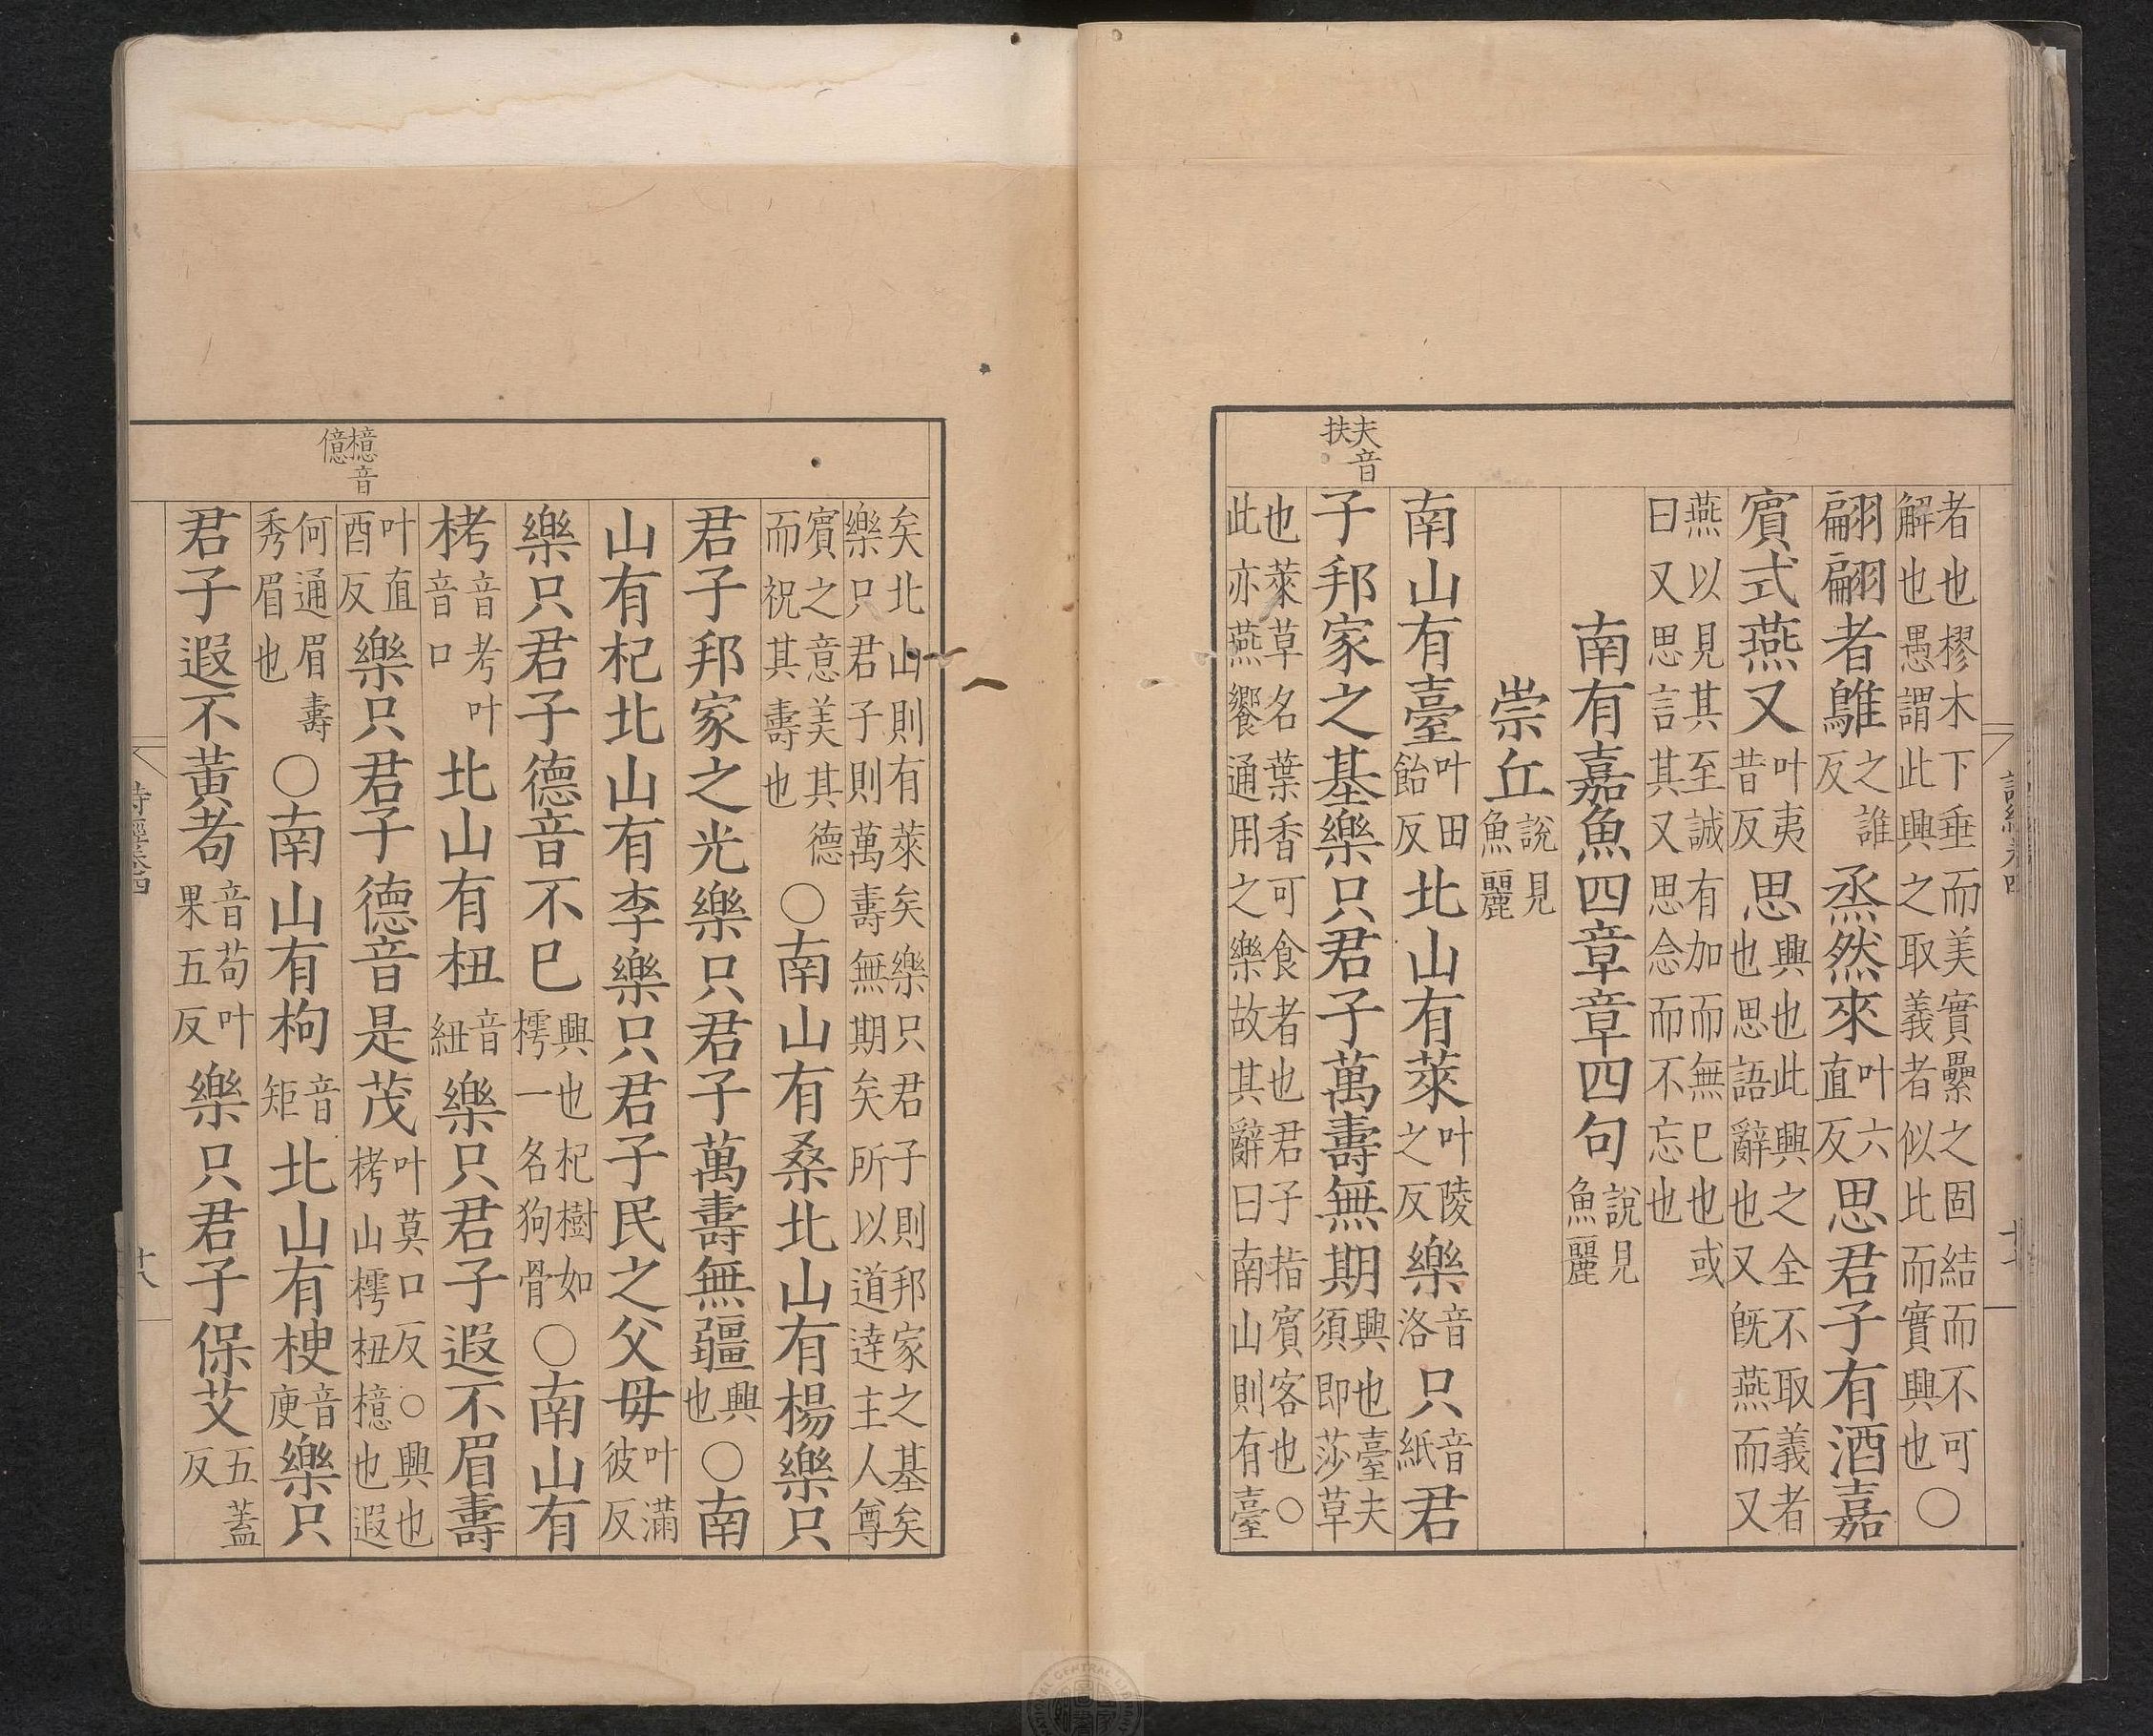 者也樛木下垂而美實纍之固結而不可解也愚謂此興之取義者似比而實興也○
翩翩者鵻之誰反烝然來叶六直反思君子有酒嘉
賓式燕又叶夷昔反思興也此興之全不取義者也思語辭也又旣燕而又
燕以見其至誠有加而無已也或曰又思言其又思念而不忘也
南有嘉魚四章章四句說見魚麗
崇丘說見魚麗
南山有臺叶田飴反北山有萊叶陵之反樂音洛只音紙君
夫音扶
子邦家之基樂只君子萬壽無期興也臺夫須即莎草
也萊草名葉香可食者也君子指賓客也○此亦燕饗通用之樂故其辭曰南山則有臺
矣北山則有萊矣樂只君子則邦家之基矣樂只君子則萬壽無期矣所以道達主人尊
賓之意美其德而祝其壽也○南山有桑北山有楊樂只
君子邦家之光樂只君子萬壽無疆興也○南
山有杞北山有李樂只君子民之父母叶滿彼反
樂只君子德音不已興也杞樹如樗一名狗骨○南山有
栲音考叶音口北山有杻音紐樂只君子遐不眉壽
檍音億
叶直酉反樂只君子德音是茂叶莫口反○興也栲山樗杻檍也遐
何通眉壽秀眉也○南山有枸音矩北山有楰音庾樂只
君子遐不黃耇音苟叶果五反樂只君子保艾五蓋反
詩經卷四
十八